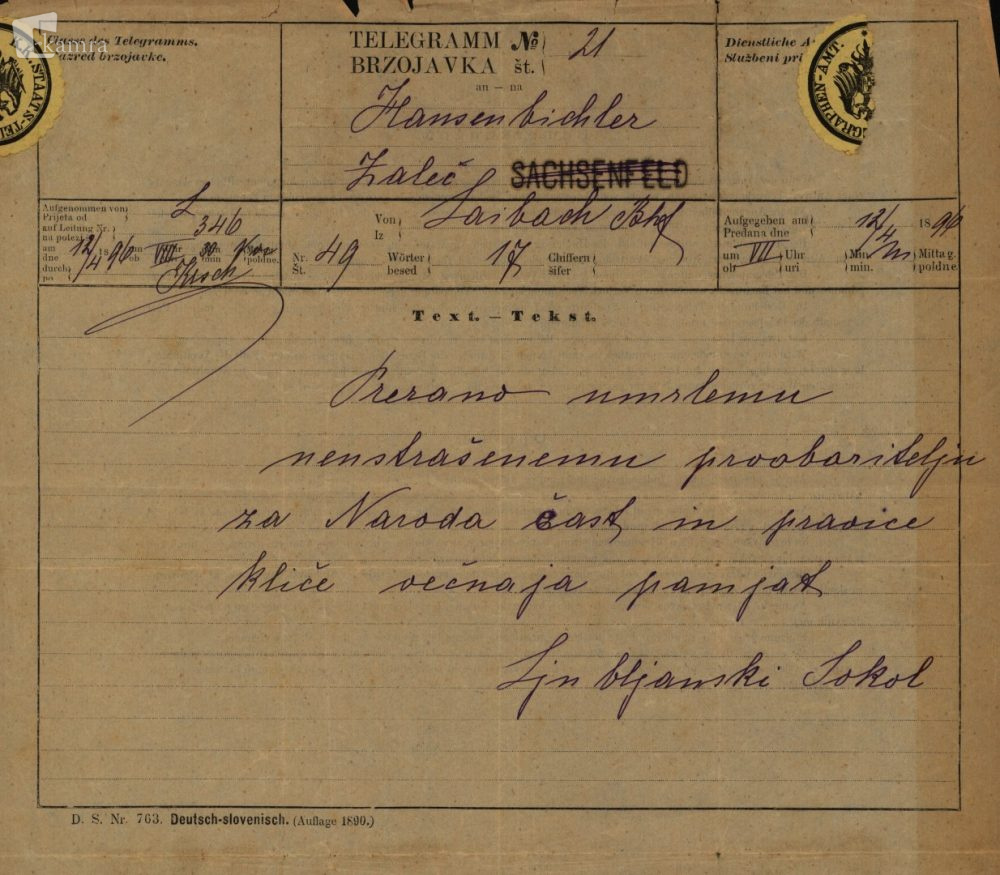 kamra
Classe des Telegramms.
Razred brzojavke.
K. STAATS-TEL
TELEGRAMM № 21
BRZOJAVKA št.
an — na
Hausenbichler
Žaleč SACHSENFELD
Dienstliche A
Službeni pri
GRAPHEN-AMT.
Aufgenommen von
Prijeta od
auf Leitung Nr. 346
na potezi
am 12/4 1896 um VIII Uhr 30
dne ob
durch
po
Von Laibach Bhf
Iz
Nr. 49 Wörter 17 Chiffern
Št. besed šifer
Aufgegeben am 12/4 1896
Predana dne
um VII Uhr Min. Mittag.
ob uri min. poldne.
Text. — Tekst.
Prerano umrlemu
neustrašenemu prooboritelju
za Naroda čast in pravice
kliče večnaja pamjat
Ljubljanski Sokol
D. S. Nr. 763. Deutsch-slovenisch. (Auflage 1890.)